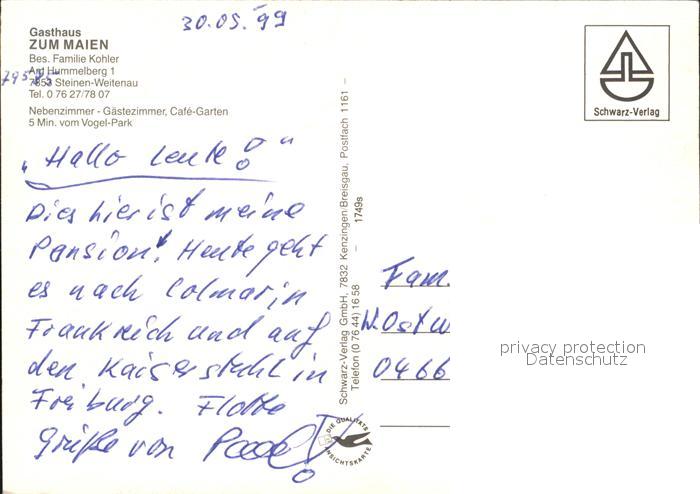 30.05.99
Gasthaus
ZUM MAIEN
Bes. Familie Kohler
Am Hummelberg 1
7853 Steinen-Weitenau
Tel. 0 76 27/78 07
Nebenzimmer - Gästezimmer, Café-Garten
5 Min. vom Vogel-Park
„Hallo Leute!"
Dies hier ist meine
Pension! Heute geht
es nach Colmar in
Frankreich und auf
den Kaiserstuhl in
Freiburg. Flotte
Grüße von
Schwarz-Verlag GmbH, 7832 Kenzingen/Breisgau, Postfach 1161 –
Telefon (0 76 44) 16 58 – 1749s
DIE QUALITÄTS
ANSICHTSKARTE
Schwarz-Verlag
Fam.
W. Ostw
0466
privacy protection
Datenschutz